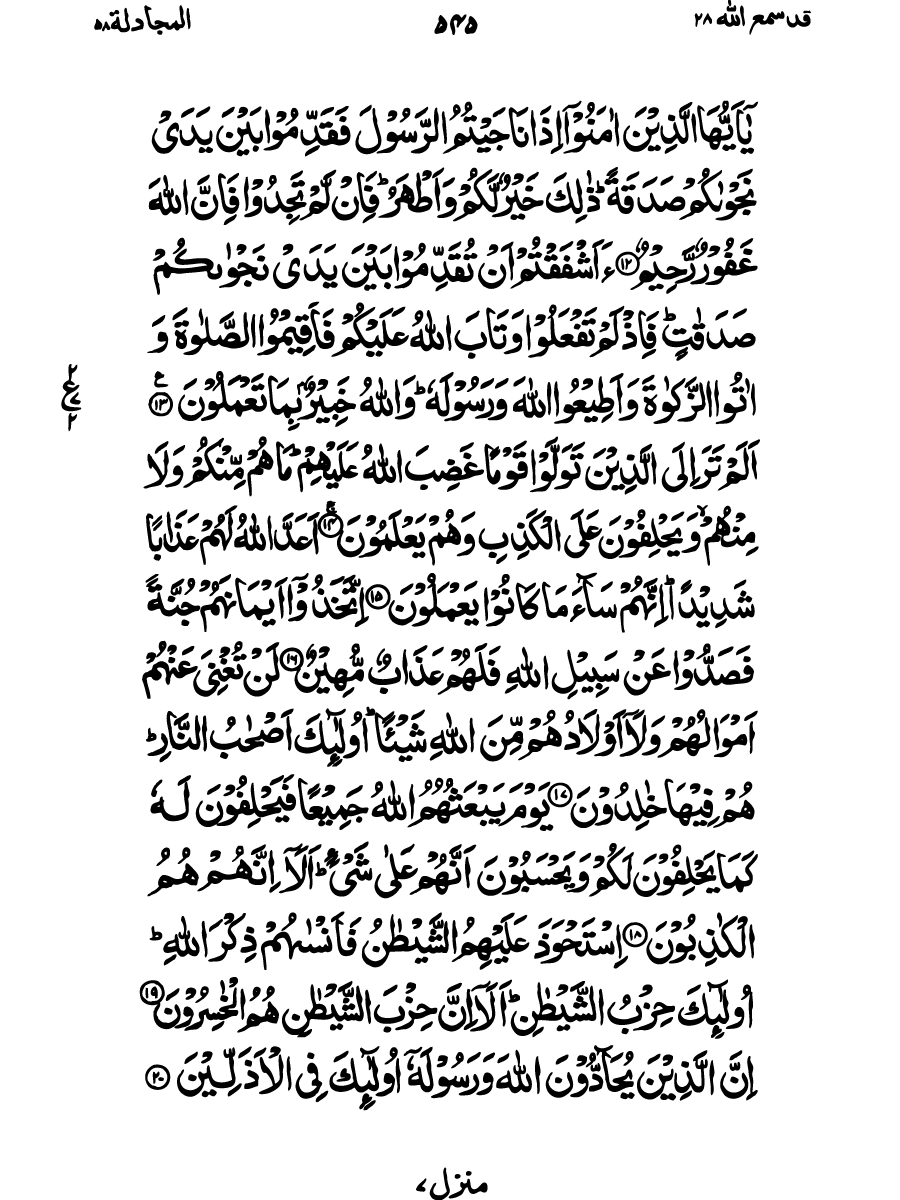 قد سمع الله ۲۸
۵۴۵
المجادلة ۵۸
يٰۤاَيُّهَا الَّذِيْنَ اٰمَنُوْۤا اِذَا نَاجَيْتُمُ الرَّسُوْلَ فَقَدِّمُوْا بَيْنَ يَدَىْ
نَجْوٰىكُمْ صَدَقَةً ؕ ذٰلِكَ خَيْرٌ لَّكُمْ وَاَطْهَرُ ؕ فَاِنْ لَّمْ تَجِدُوْا فَاِنَّ اللّٰهَ
غَفُوْرٌ رَّحِيْمٌ ﴿۱۲﴾ ءَاَشْفَقْتُمْ اَنْ تُقَدِّمُوْا بَيْنَ يَدَىْ نَجْوٰىكُمْ
صَدَقٰتٍ ؕ فَاِذْ لَمْ تَفْعَلُوْا وَتَابَ اللّٰهُ عَلَيْكُمْ فَاَقِيْمُوا الصَّلٰوةَ وَ
اٰتُوا الزَّكٰوةَ وَاَطِيْعُوا اللّٰهَ وَرَسُوْلَهٗ ؕ وَاللّٰهُ خَبِيْرٌۢ بِمَا تَعْمَلُوْنَ ﴿۱۳﴾ ع
۲ ع ۲
اَلَمْ تَرَ اِلَى الَّذِيْنَ تَوَلَّوْا قَوْمًا غَضِبَ اللّٰهُ عَلَيْهِمْ ؕ مَا هُمْ مِّنْكُمْ وَلَا
مِنْهُمْ ۙ وَيَحْلِفُوْنَ عَلَى الْكَذِبِ وَهُمْ يَعْلَمُوْنَ ﴿۱۴﴾ اَعَدَّ اللّٰهُ لَهُمْ عَذَابًا
شَدِيْدًا ؕ اِنَّهُمْ سَآءَ مَا كَانُوْا يَعْمَلُوْنَ ﴿۱۵﴾ اِتَّخَذُوْۤا اَيْمَانَهُمْ جُنَّةً
فَصَدُّوْا عَنْ سَبِيْلِ اللّٰهِ فَلَهُمْ عَذَابٌ مُّهِيْنٌ ﴿۱۶﴾ لَنْ تُغْنِىَ عَنْهُمْ
اَمْوَالُهُمْ وَلَاۤ اَوْلَادُهُمْ مِّنَ اللّٰهِ شَيْـًٔا ؕ اُولٰٓئِكَ اَصْحٰبُ النَّارِ ؕ
هُمْ فِيْهَا خٰلِدُوْنَ ﴿۱۷﴾ يَوْمَ يَبْعَثُهُمُ اللّٰهُ جَمِيْعًا فَيَحْلِفُوْنَ لَهٗ
كَمَا يَحْلِفُوْنَ لَكُمْ وَيَحْسَبُوْنَ اَنَّهُمْ عَلٰى شَىْءٍ ؕ اَلَاۤ اِنَّهُمْ هُمُ
الْكٰذِبُوْنَ ﴿۱۸﴾ اِسْتَحْوَذَ عَلَيْهِمُ الشَّيْطٰنُ فَاَنْسٰىهُمْ ذِكْرَ اللّٰهِ ؕ
اُولٰٓئِكَ حِزْبُ الشَّيْطٰنِ ؕ اَلَاۤ اِنَّ حِزْبَ الشَّيْطٰنِ هُمُ الْخٰسِرُوْنَ ﴿۱۹﴾
اِنَّ الَّذِيْنَ يُحَآدُّوْنَ اللّٰهَ وَرَسُوْلَهٗۤ اُولٰٓئِكَ فِى الْاَذَلِّيْنَ ﴿۲۰﴾
منزل ۷